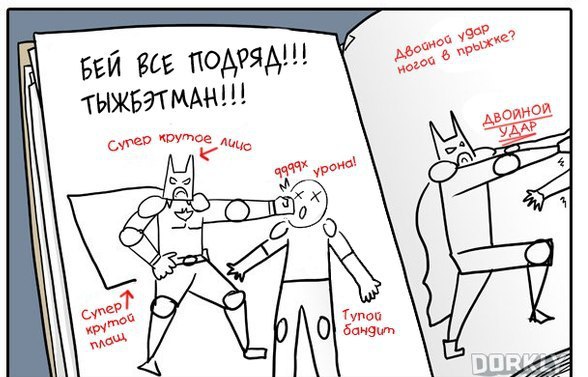 БЕЙ ВСЕ ПОДРЯД!!!
ТЫЖБЭТМАН!!!
Супер крутое лицо
9999х
урона!
Супер
крутой
плащ
Тупой
бандит
Двойной удар
ногой в прыжке?
ДВОЙНОЙ
УДАР
DORKLY